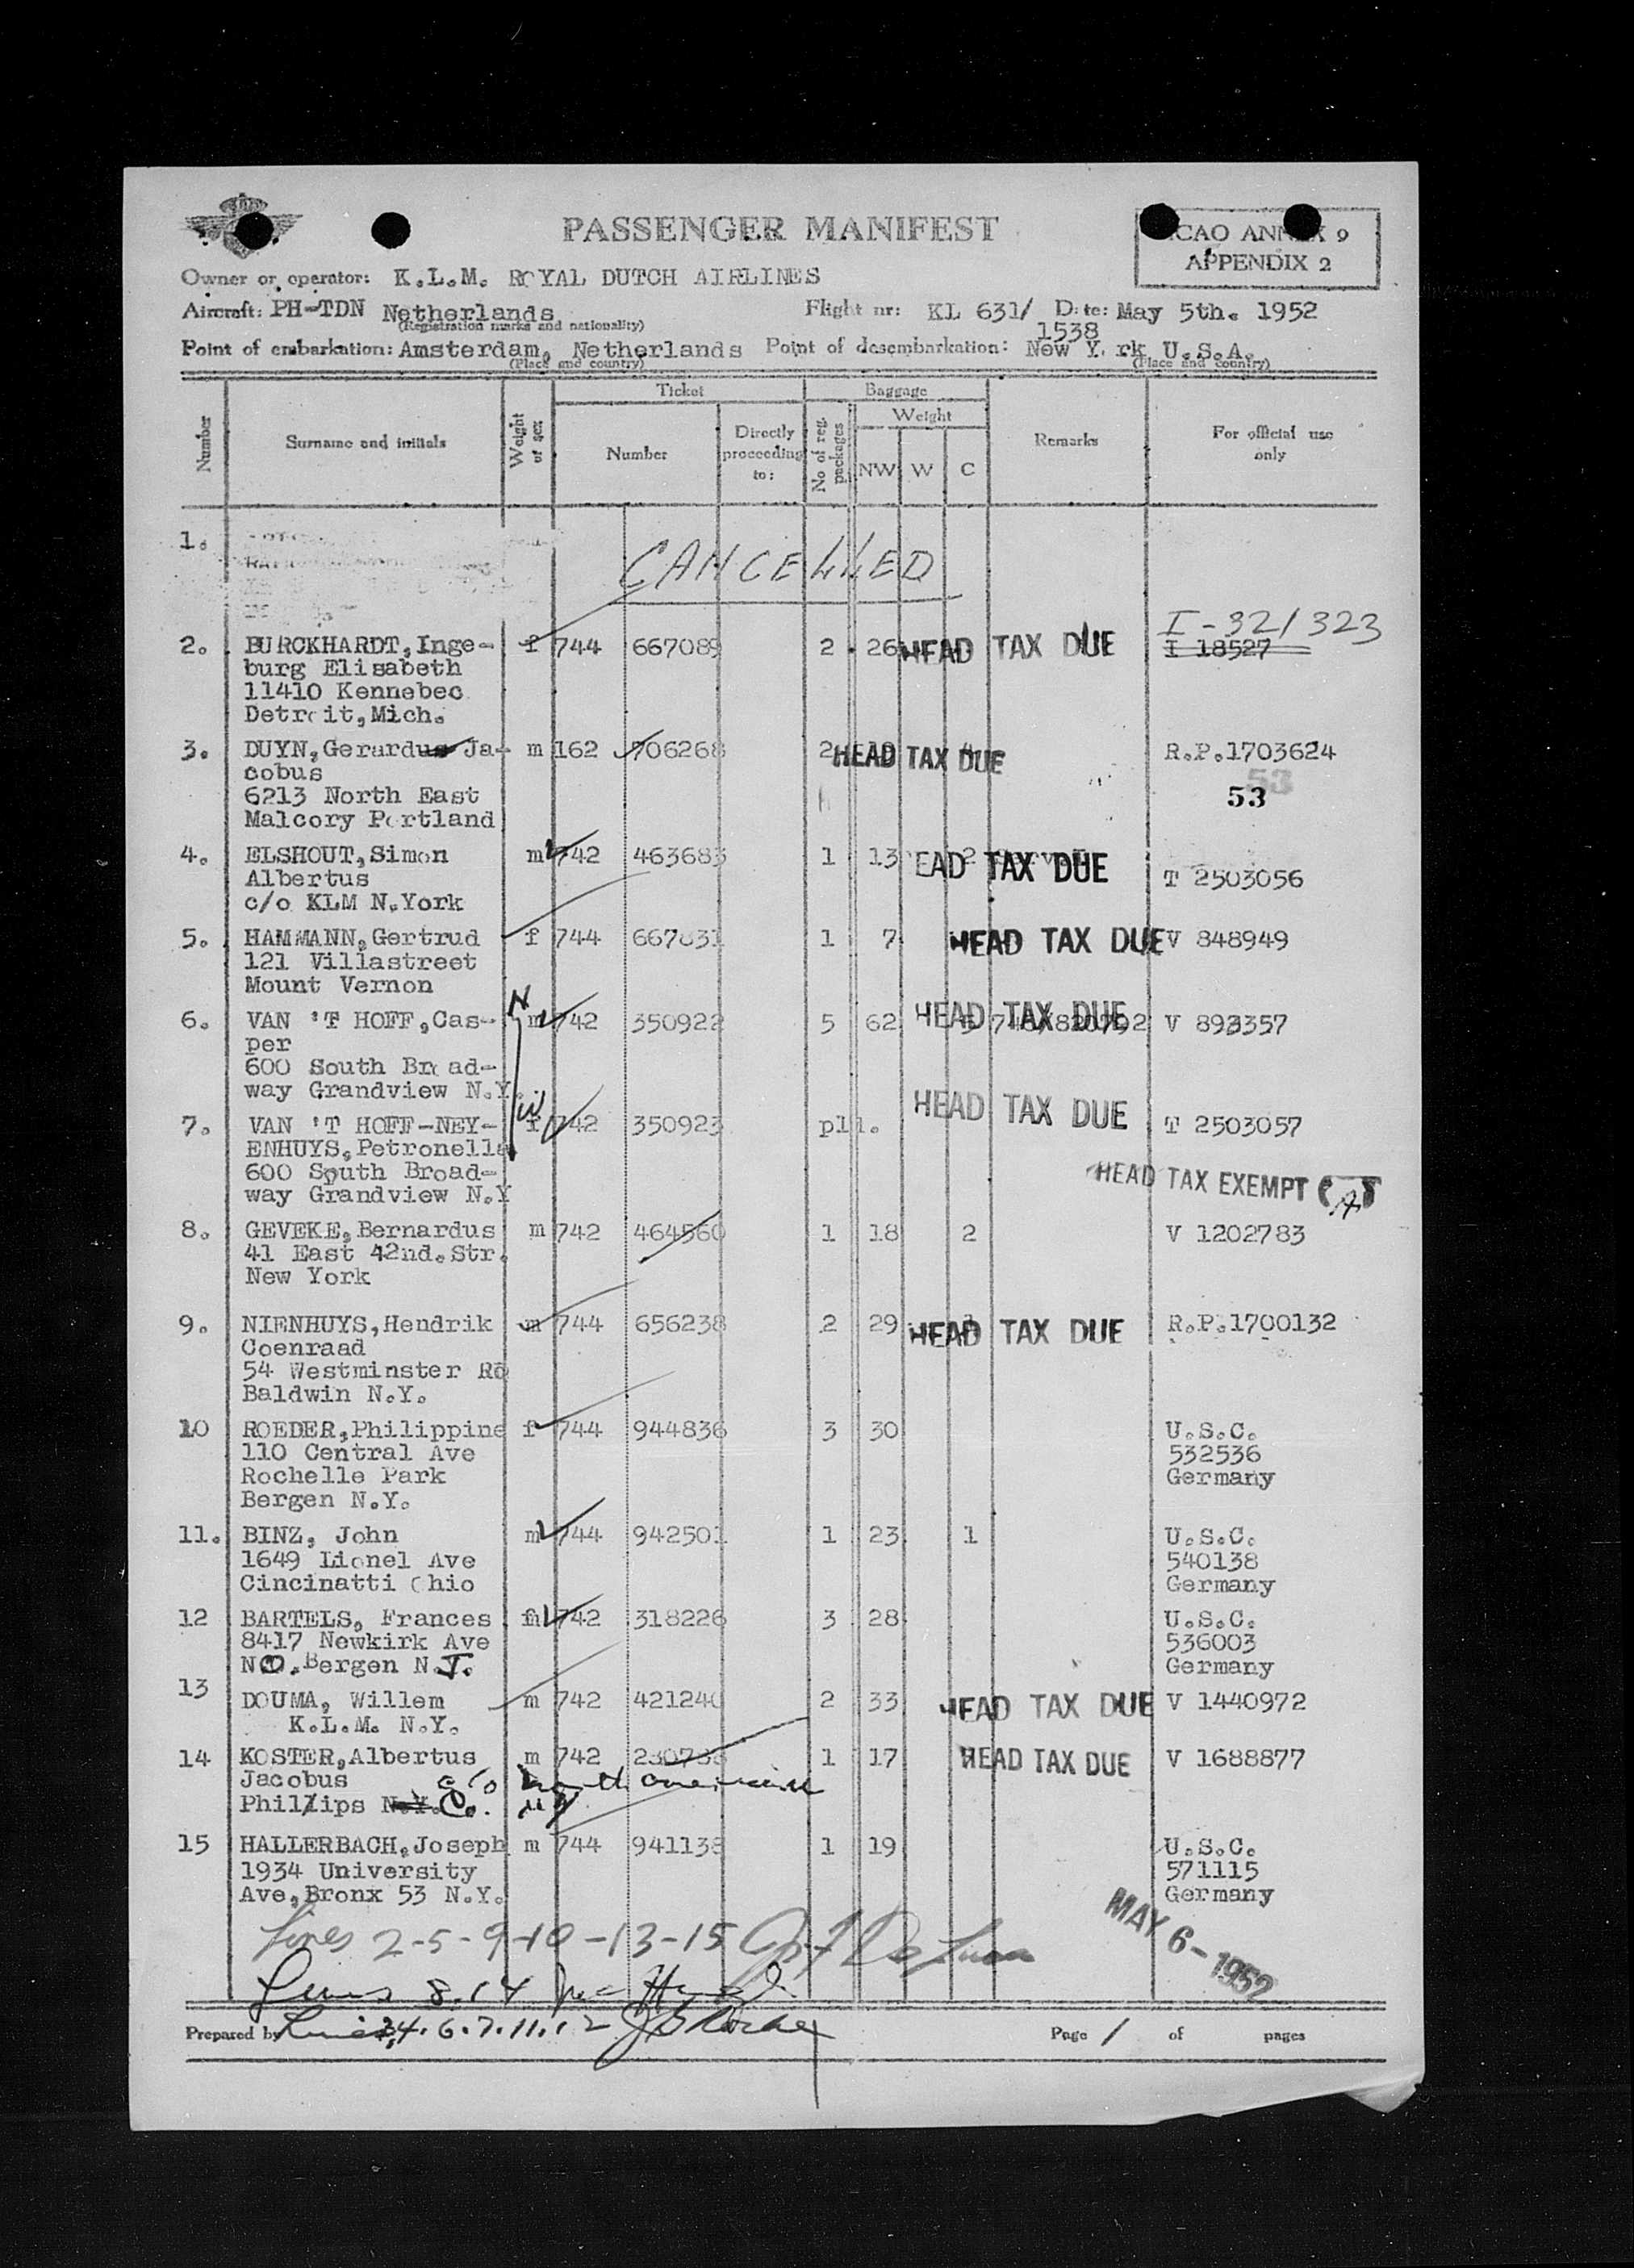 PASSENGER MANIFEST
ICAO ANNEX 9
APPENDIX 2
Owner or operator: K.L.M. ROYAL DUTCH AIRLINES
Aircraft: PH-TDN Netherlands Flight nr: KL 631/ Date: May 5th. 1952
(Registration marks and nationality) 1538
Point of embarkation: Amsterdam, Netherlands Point of desembarkation: New York U.S.A.
(Place and country) (Place and country)
Number Surname and initials Weight of sex Ticket Number Directly proceeding to: Baggage No of reg. packages Weight NW W C Remarks For official use only
1. CANCELLED
I-321323
2. BURCKHARDT, Inge- f 744 667089 2 26 HEAD TAX DUE I 18527
burg Elisabeth
11410 Kennebec
Detroit, Mich.
3. DUYN, Gerardus Ja- m 162 706268 2 HEAD TAX DUE R.P.1703624
cobus 53
6213 North East 53
Malcory Portland
4. ELSHOUT, Simon m 742 463683 1 13 2 HEAD TAX DUE
Albertus T 2503056
c/o KLM N.York
5. HAMMANN, Gertrud f 744 667831 1 7 HEAD TAX DUE V 848949
121 Villastreet
Mount Vernon
6. VAN 'T HOFF, Cas- m 742 350922 5 62 HEAD TAX DUE V 893357
per
600 South Broad-
way Grandview N.Y.
H
W
7. VAN 'T HOFF-NEY- f 742 350923 pll. HEAD TAX DUE T 2503057
ENHUYS, Petronella
600 South Broad-
way Grandview N.Y
HEAD TAX EXEMPT
8. GEVEKE, Bernardus m 742 464560 1 18 2 V 1202783
41 East 42nd. Str.
New York
9. NIENHUYS, Hendrik m 744 656238 2 29 HEAD TAX DUE R.P.1700132
Coenraad
54 Westminster Rd
Baldwin N.Y.
10 ROEDER, Philippine f 744 944836 3 30 U.S.C.
110 Central Ave 532536
Rochelle Park Germany
Bergen N.Y.
11. BINZ, John m 744 942501 1 23 1 U.S.C.
1649 Lionel Ave 540138
Cincinatti Ohio Germany
12 BARTELS, Frances 742 318226 3 28 U.S.C.
8417 Newkirk Ave 536003
NO. Bergen N.J. Germany
13 DOUMA, Willem m 742 421240 2 33 HEAD TAX DUE V 1440972
K.L.M. N.Y.
14 KOSTER, Albertus m 742 230738 1 17 HEAD TAX DUE V 1688877
Jacobus c/o
Phillips N.Y. Co. NY
15 HALLERBACH, Joseph m 744 941138 1 19 U.S.C.
1934 University 571115
Ave, Bronx 53 N.Y. Germany
MAY 6-1952
Lines 2-5-9-10-13-15
Lines 8.14
Prepared by Lines 3,4.6.7.11.12 Page 1 of pages